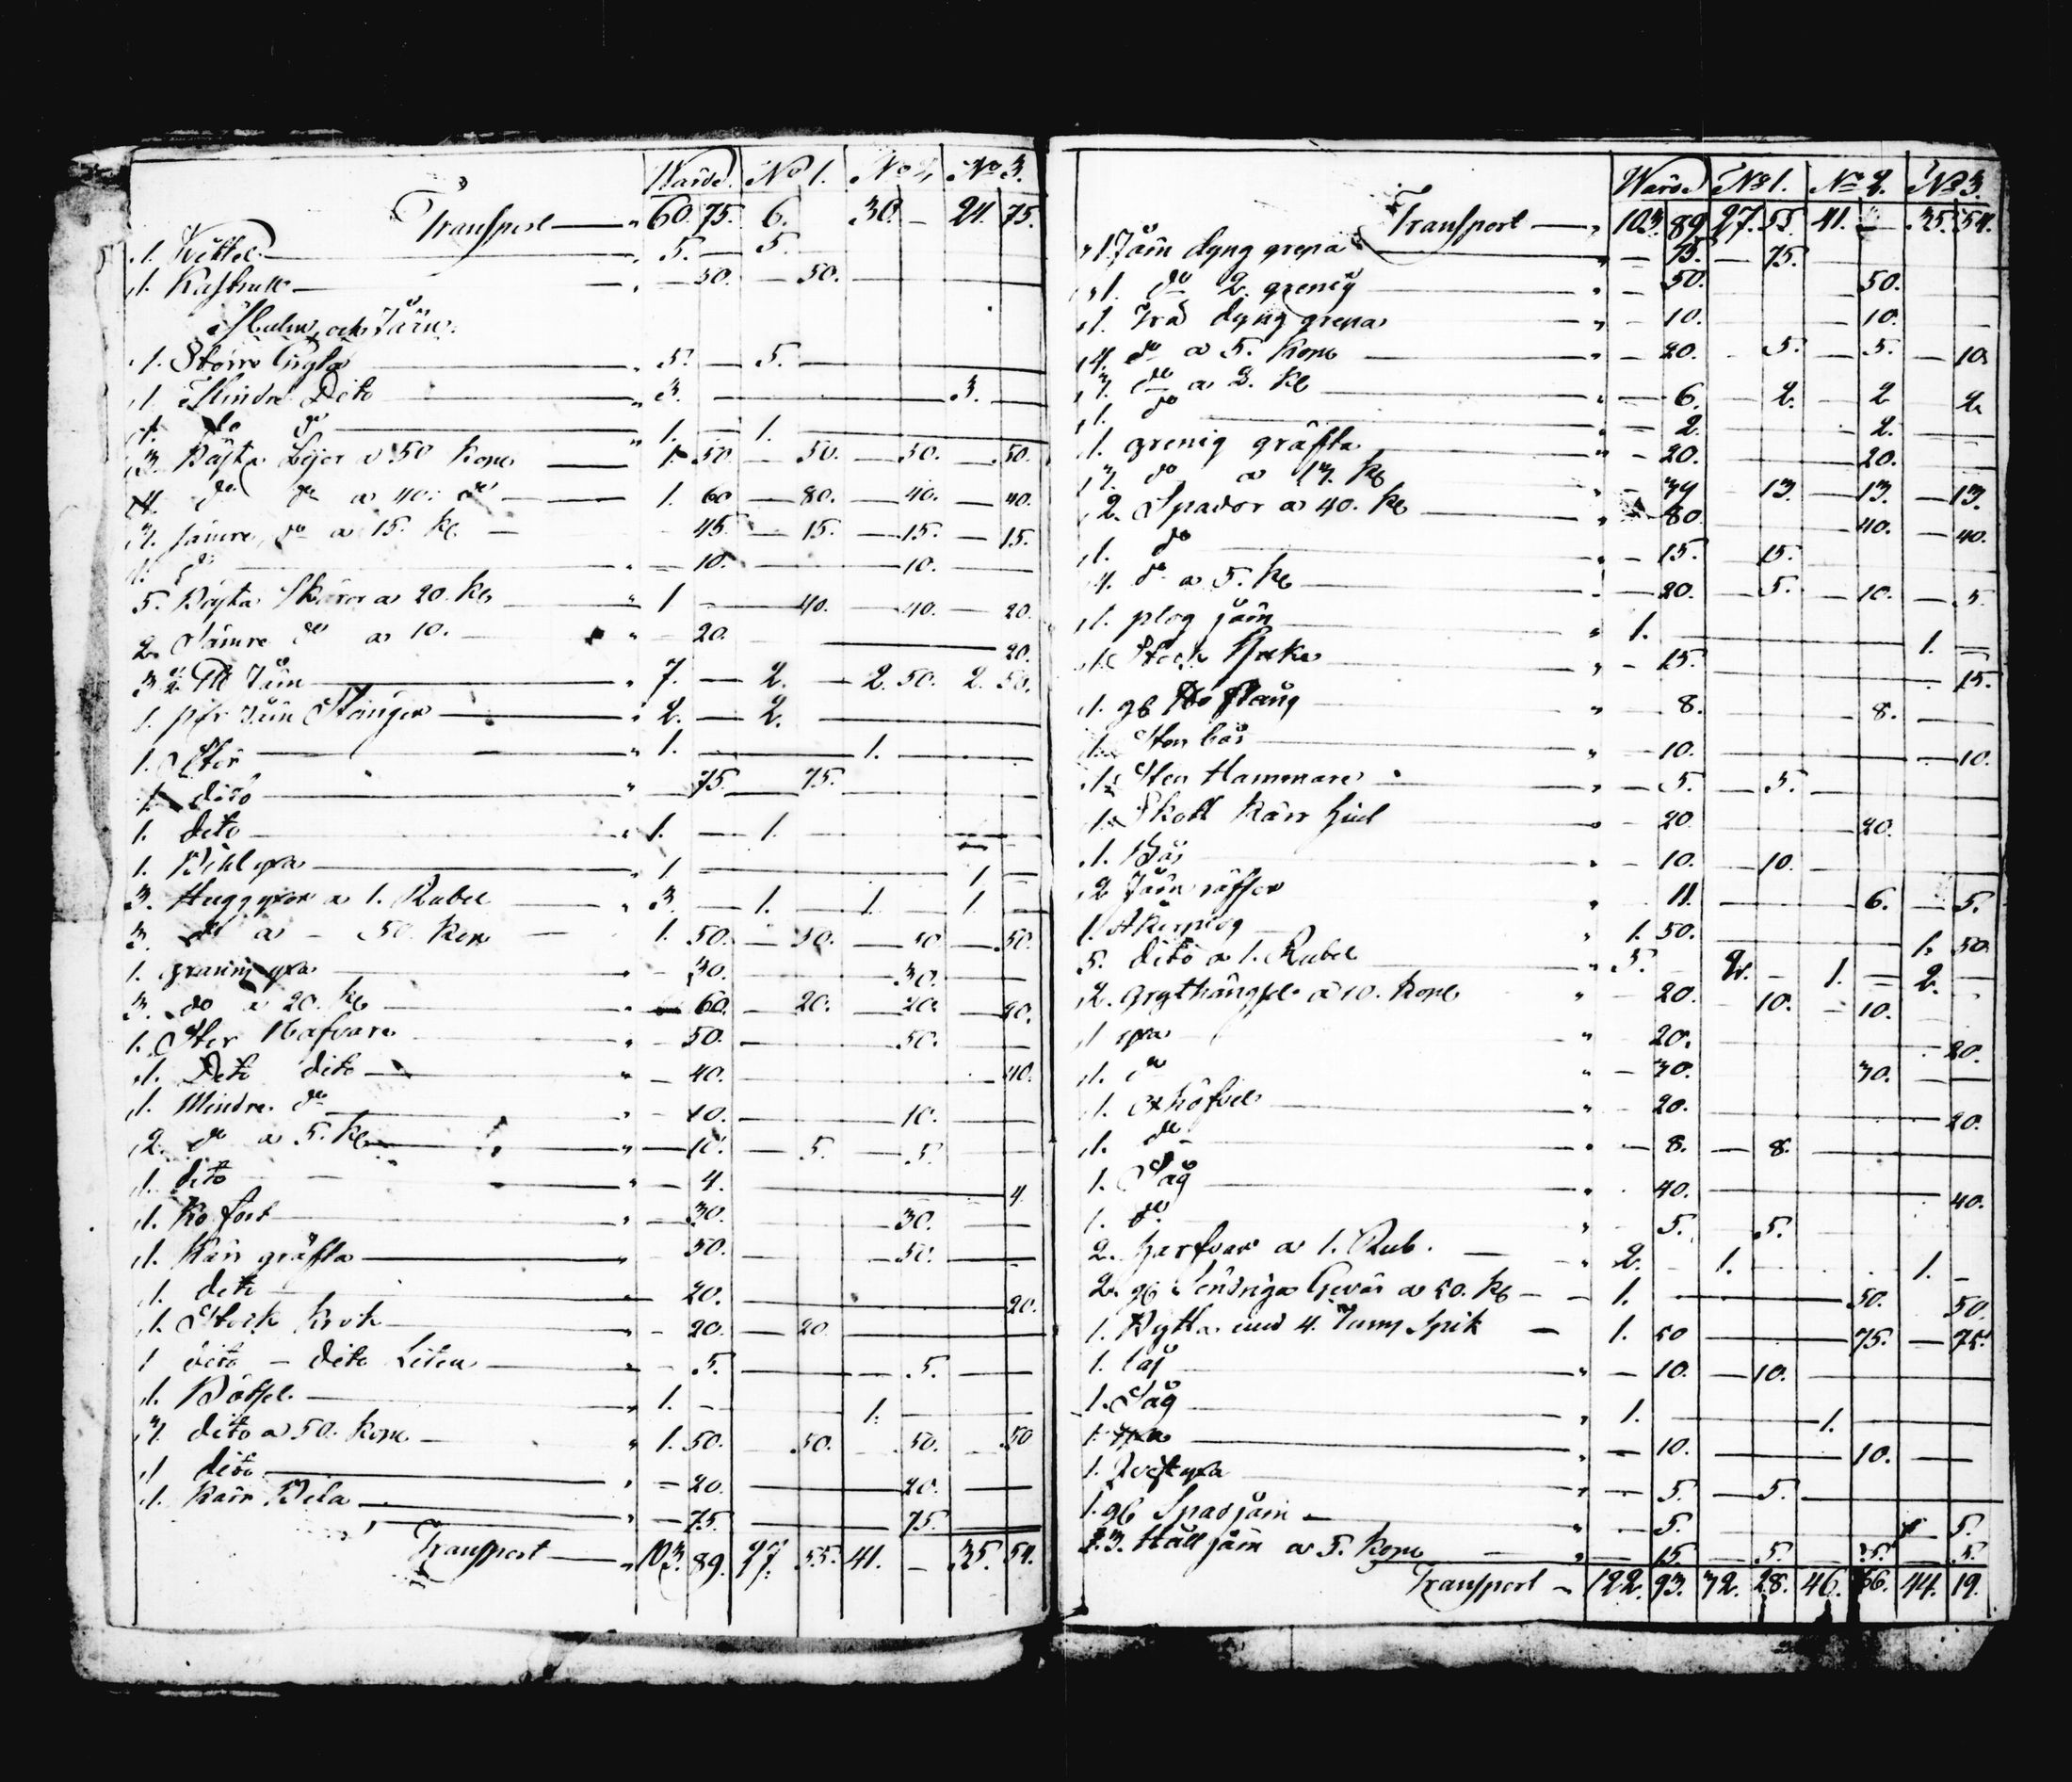 Wärde. No 1. No 2. No 3.
Transport — 60. 75. 6. 30. — 24. 75.
1. Kittel — 5. — 5.
1. Kastrull — 50. — 50.
Malm och Järn.
1. Större Gryta — 5. — 5.
1. Mindre Dito — 3. — 3.
1. do do — 1. — 1.
3. Bästa Lijor a 50 Kop — 1. 50. — 50. — 50. — 50.
4. do do a 40. do — 1. 60 — 80. — 40. — 40.
3. sämre do a 15. K — 45. — 15. — 15. — 15.
1. do — 10. — 10.
5. Bästa Skäror a 20. K — 1 — 40. — 40. — 20.
2. Sämre do a 10. — 20. — 20.
3 ½ Järn — 7. — 2. — 2. 50. 2. 50.
1. par Järn Stänger — 2. — 2.
1. Stör — 1. — 1.
1. dito — 75. — 75.
1. dito — 1. — 1.
1. Bihlyxa — 1 — 1 —
3. Huggyxor a 1. Rubel — 3. — 1. — 1. — 1 —
3. do a — 50. Kop — 1. 50. — 50. — 50 — 50.
1. yxa — 30. — 30.
3. do a 20. K — 60. — 20. — 20. — 20.
1. Stor Nafvare — 50. — 50.
1. Dito dito — 40. — 40.
1. Mindre do — 10. — 10.
2. do a 5. K — 10. — 5. — 5.
1. dito — 4. — 4
1. Kofot — 30. — 30.
1. gräfta — 50. — 50.
1. dito — 20. — 20.
1. Stock Krok — 20. — 20.
1 dito — dito Liten — 5. — 5.
1. — 1. — 1.
3. dito a 50. Kop — 1. 50. — 50. — 50. — 50
1 dito — 20. — 20. —
1. — 75. — 75.
Transport — 103. 89. 27. 55. 41. — 35. 54.
Wärde No 1. No 2. No 3.
Transport — 103. 89. 27. 55. 41. — 35. 54.
1 Järn dyng grepa — 75. — 75.
1. do 2. grenig — 50. 50.
1. Trä dyng grepa — 10. 10.
4. do a 5. Kop — 20. — 5. — 5. — 10
3. do a 2. K — 6. — 2. — 2 2
1. do — 2. 2.
1. grenig gräfta — 20. 20.
3. do a 13. K — 39 — 13. — 13. — 13.
2. Spador a 40. K — 80. 40. — 40.
1. do — 15. 15.
4. do a 5. K — 20. — 5. — 10. — 5.
1. plog järn — 1. — 1. —
1. Stock — 15. — 15.
1. gl — 8. — 8.
1. Sten bår — 10. — 10.
1. Sten Hammare — 5. — 5.
1. Skott Kärr hjul — 20 20.
1. — 10. — 10.
2 Järn räfsor — 11. — 6. — 5.
1. Åkerplog — 1. 50. — 1. 50
5. dito a 1. Rubel — 5. — 2. — 1. — 2. —
2. grythängsle a 10. Kop — 20. — 10. — 10.
1 yxa — 20. 20.
1. do — 30. 30. —
1. — 20. 20.
1. do — 8. — 8.
1. Såg — 40. — 40.
1. do — 5. 5.
2. harfvar a 1. Rub. — 2. — 1. 1. —
2. gl Gevär a 50. K — 1. — 50. 50.
1. Bytta med 4. Tums Spik — 1. 50 — 75. — 75.
1. lås — 10. — 10.
1. Såg — 1. — 1.
1. yxa — 10. — 10.
1. yxa — 5. — 5.
1. gl Spad järn — 5. 5.
3. Håll järn a 5. Kop — 15 — 5. — 5. — 5.
Transport — 122. 93. 32. 28. 46. 46. 44. 19.